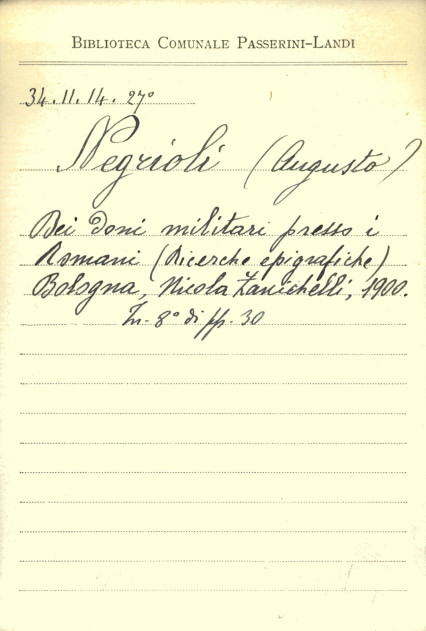 Biblioteca Comunale Passerini-Landi
34.11.14. 27°
Negrioli (Augusto)
Dei doni militari presso i
Romani (Ricerche epigrafiche)
Bologna, Nicola Zanichelli, 1900.
In-8° di pp. 30